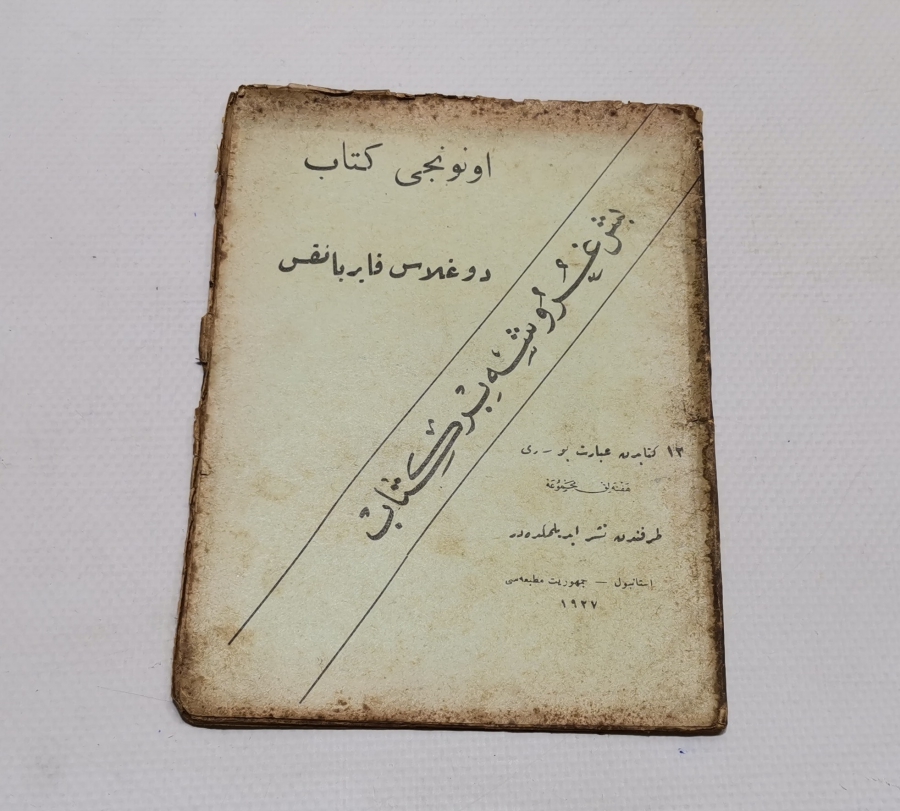 اونونجی كتاب
دوغلاس فایربانقس
بش غروشه بر كتاب
١٢ كتابدن عبارت بو سری
هفته‌لق مجموعه
طرفندن نشر ایدیلمكده‌در
استانبول — جمهوریت مطبعه‌سی
١٩٢٧